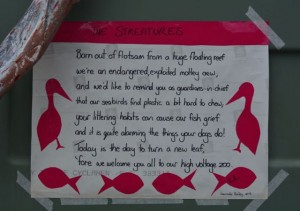 THE STREATURES
Born out of flotsam from a huge floating reef
we're an endangered, exploited motley crew,
and we'd like to remind you as guardians-in-chief
that our seabirds find plastic a bit hard to chew,
your littering habits can cause our fish grief
and it is quite alarming the things your dogs do!
Today is the day to turn a new leaf,
'fore we welcome you all to our high voltage zoo...